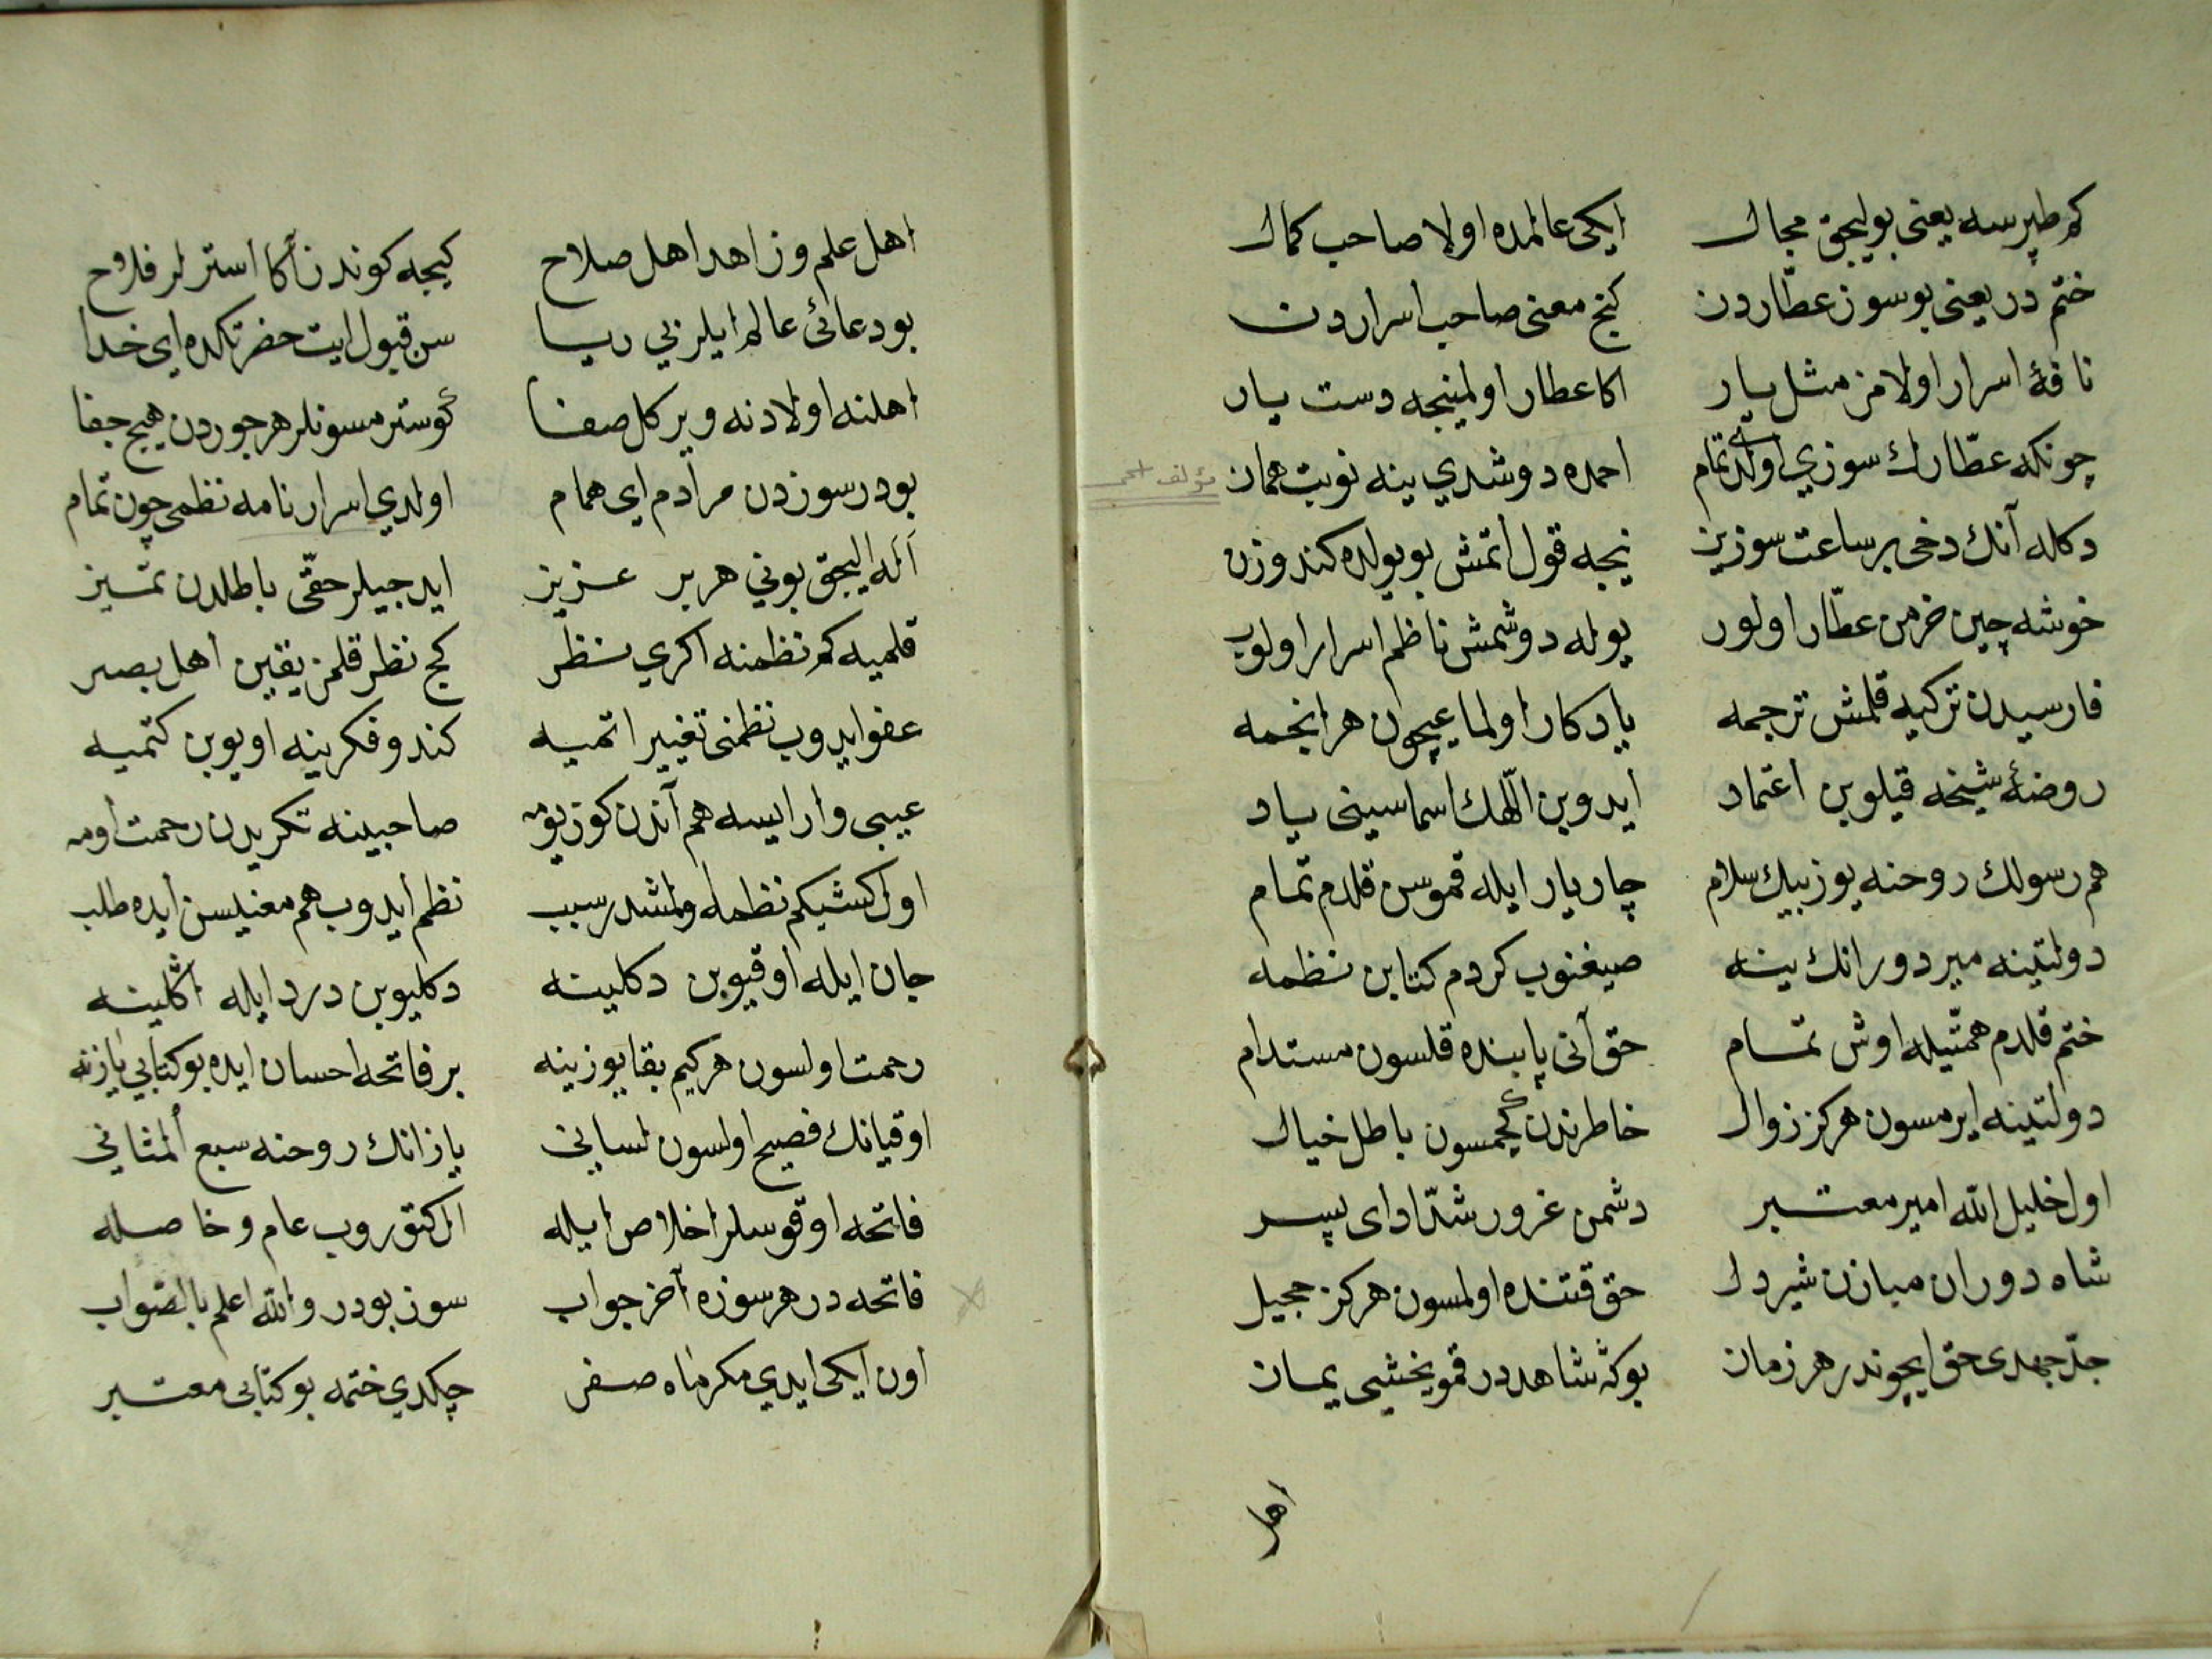 كم طپرسه يعنى بوليجق مجال ايكى عالمده اولا صاحب كمال
ختم در يعنى بو سوز عطّاردن كنج معنى صاحب اسراردن
نافۀ اسرار اولامز مثل يار اكا عطار اولمينجه دست يار
چونكه عطّارك سوزي اولدى تمام احمده دوشدي ينه نوبت همان
مؤلف احمد
دكله آنك دخى بر ساعت سوزين نيجه قول اتمش بو يولده كندوزن
خوشه چين خرمن عطّار اولور يوله دوشمش ناظم اسرار اولوب
فارسيدن تركيه قلمش ترجمه يادكار اولماغيچون هر انجمه
روضۀ شيخه قيلوبن اعتماد ايدوبن اللّهك اسماسينى ياد
هم رسولك روحنه يوز بيك سلام چار يار ايله قموسن قلدم تمام
دولتينه مير دورانك ينه صيغنوب كردم كتابن نظمه
ختم قلدم همّتيله اوش تمام حق آنى پاينده قلسون مستدام
دولتينه ايرمسون هركز زوال خاطرندن كچمسون باطل خيال
اول خليل الله امير معتبر دشمن غرور شدّاد اى پسر
شاه دوران مبازن شيردل حق قتنده اولمسون هركز حجيل
جدّ جهدى حق ايچوندر هر زمان بوكه شاهددر قمو يخشى يمان
اهل
اهل علم و زاهد اهل صلاح كيجه كوندز آكا استرلر فلاح
بو دعائى عالم ايلر بي ريا سن قبول ايت حضرتكده اى خدا
اهلنه اولادنه وير كل صفا كوسترمسونلر هر جوردن هيچ جفا
بودر سوزدن مرادم اى همام اولدي اسرارنامه نظمى چون تمام
آله اليجق بوني هر بر عزيز ايدجيلر حقّى باطلدن تميز
قلميه كم نظمنه اكري نظر كج نظر قلمز يقين اهل بصر
عفو ايدوب نظمنى تغيير اتميه كندو فكرينه اويوبن كتميه
عيبى وار ايسه هم آندن كوز يومه صاحبينه تكريدن رحمت اومه
اول كشيكم نظمله ولمشدر سبب نظم ايدوب هم معنيسن ايده طلب
جان ايله اوقيوبن دكلينه دكليوبن درد ايله اكلينه
رحمت اولسون هركيم بقا يوزينه بر فاتحه احسان ايده بو كتابي يازنه
اوقيانك فصيح اولسون لسانى يازانك روحنه سبع المثاني
فاتحه اوقوسلر اخلاص ايله ال كتوروب عام و خاصله
فاتحه در هر سوزه آخر جواب سوز بودر والله اعلم بالصّواب
اون ايكى ايدي مكر ماه صفر چكدي ختمه بو كتابى معتبر